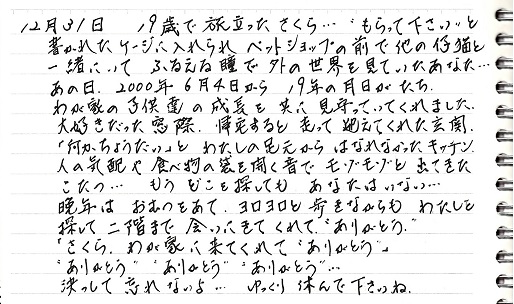 12月31日　19歳で旅立ったさくら…"もらって下さい"と
書かれたケージに入れられ ペットショップの前で他の仔猫と
一緒にいて ふるえる瞳で外の世界を見ていたあなた…
あの日、2000年 6月4日から 19年の月日がたち、
わが家の子供達の成長を共に見守っていてくれました。
大好きだった窓際、帰宅すると走って迎えてくれた玄関、
「何かちょうだい」と わたしの足元から はなれなかったキッチン、
人の気配や食べ物の袋を開く音で モゾモゾと出てきた
こたつ… もう どこを探しても あなたはいない…
晩年は おむつをあて、ヨロヨロと歩きながらも わたしを
探して 二階まで 会いにきてくれて"ありがとう"
「さくら、わが家に来てくれて"ありがとう"」
"ありがとう" "ありがとう" "ありがとう"…
決して忘れないよ… ゆっくり休んで下さいね。